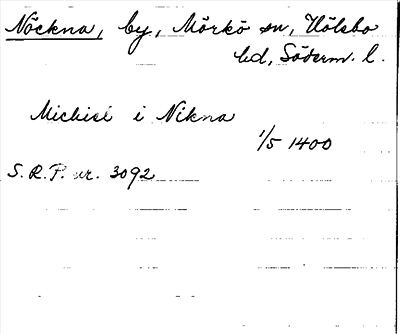 Nöckna, by, Mörkö sn, Hölebo
hd, Söderm. l.
Michiel i Nikna
1/5 1400
S.R.P. nr. 3092